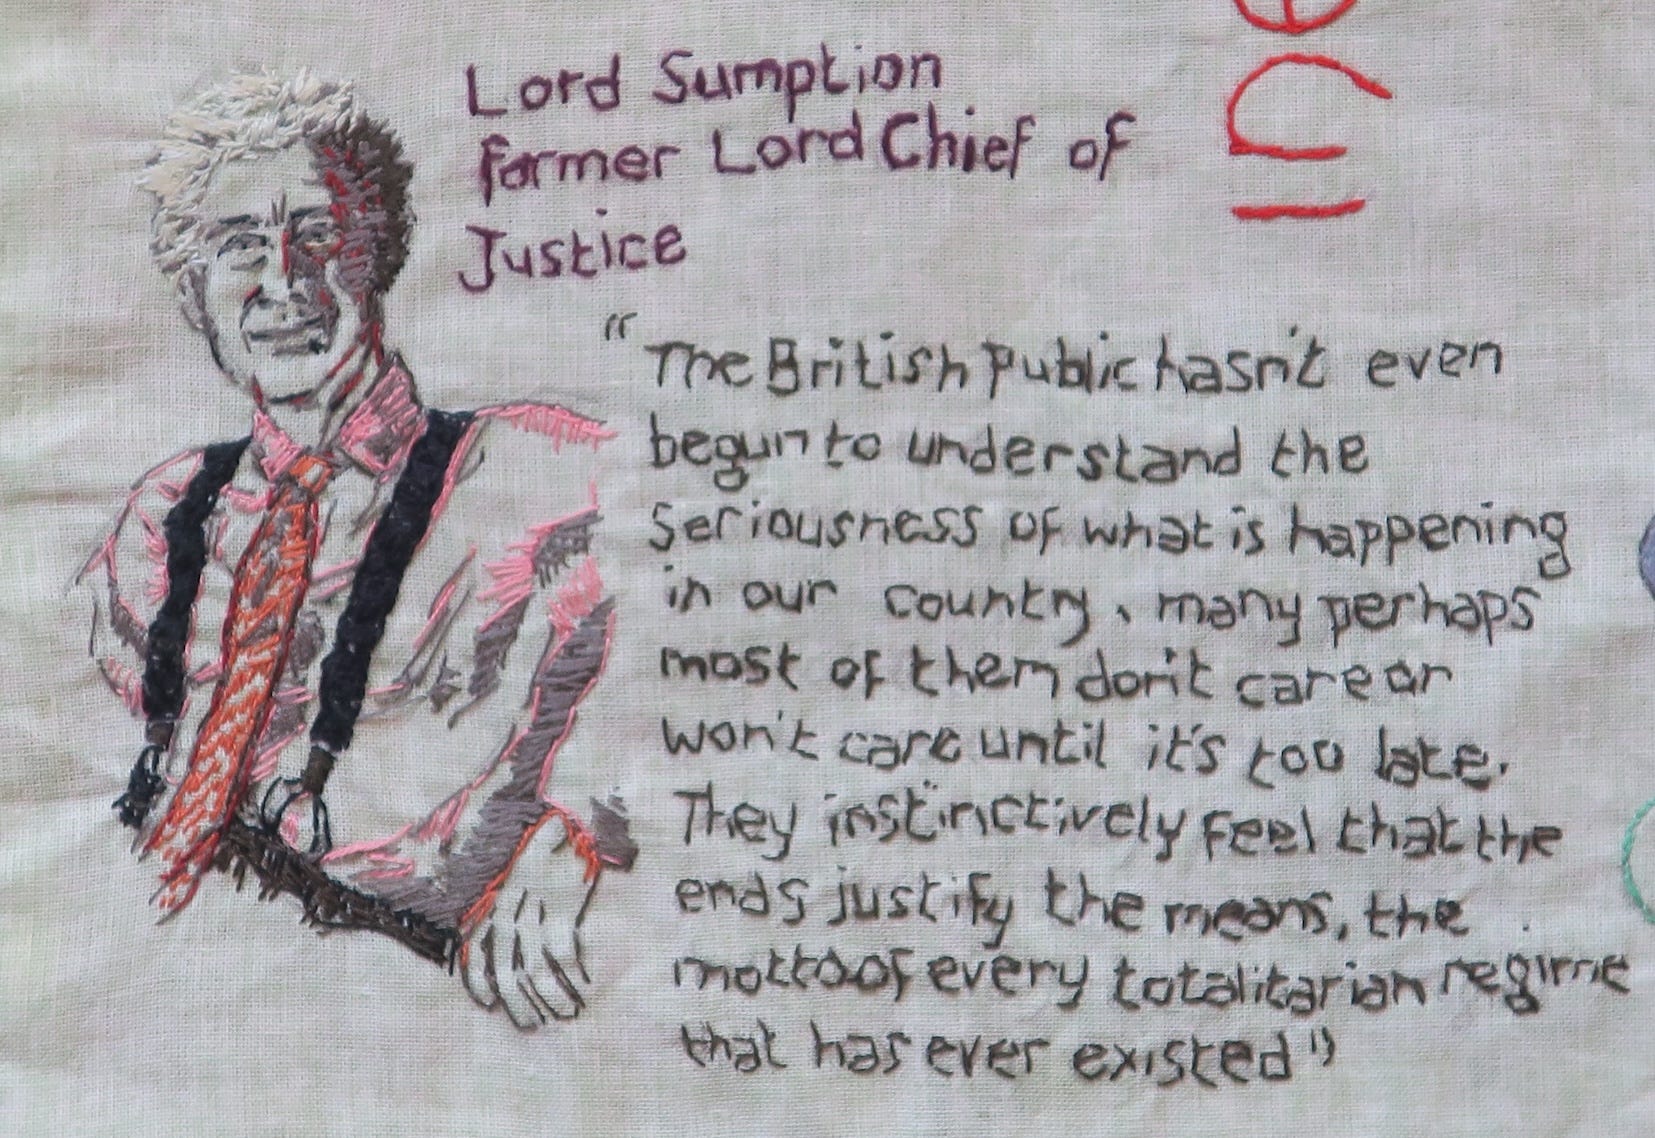 Lord Sumption
former Lord Chief of
Justice
"The British public hasn't even
begun to understand the
seriousness of what is happening
in our country, many perhaps
most of them don't care or
won't care until it's too late.
They instinctively feel that the
ends justify the means, the
motto of every totalitarian regime
that has ever existed"